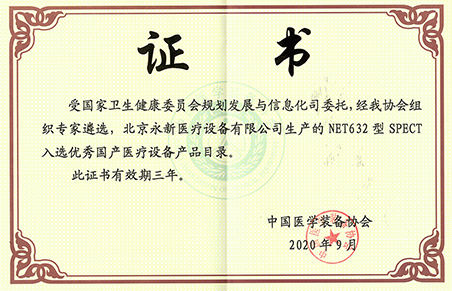 证 书
受国家卫生健康委员会规划发展与信息化司委托，经我协会组
织专家遴选，北京永新医疗设备有限公司生产的 NET632 型 SPECT
入选优秀国产医疗设备产品目录。
此证书有效期三年。
中国医学装备协会
2020 年 9 月